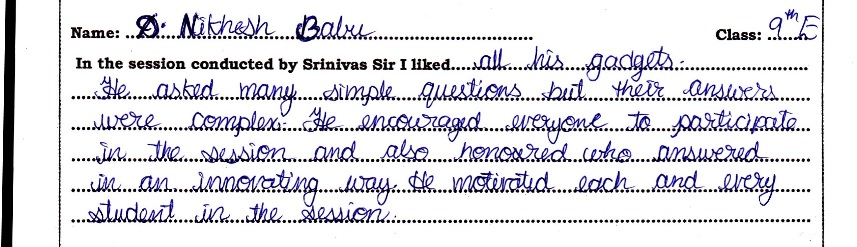 Name: D. Nikhesh Babu Class: 9th E
In the session conducted by Srinivas Sir I liked all his gadgets.
He asked many simple questions but their answers
were complex. He encouraged everyone to participate
in the session and also honoured who answered
in an innovating way. He motivated each and every
student in the session.